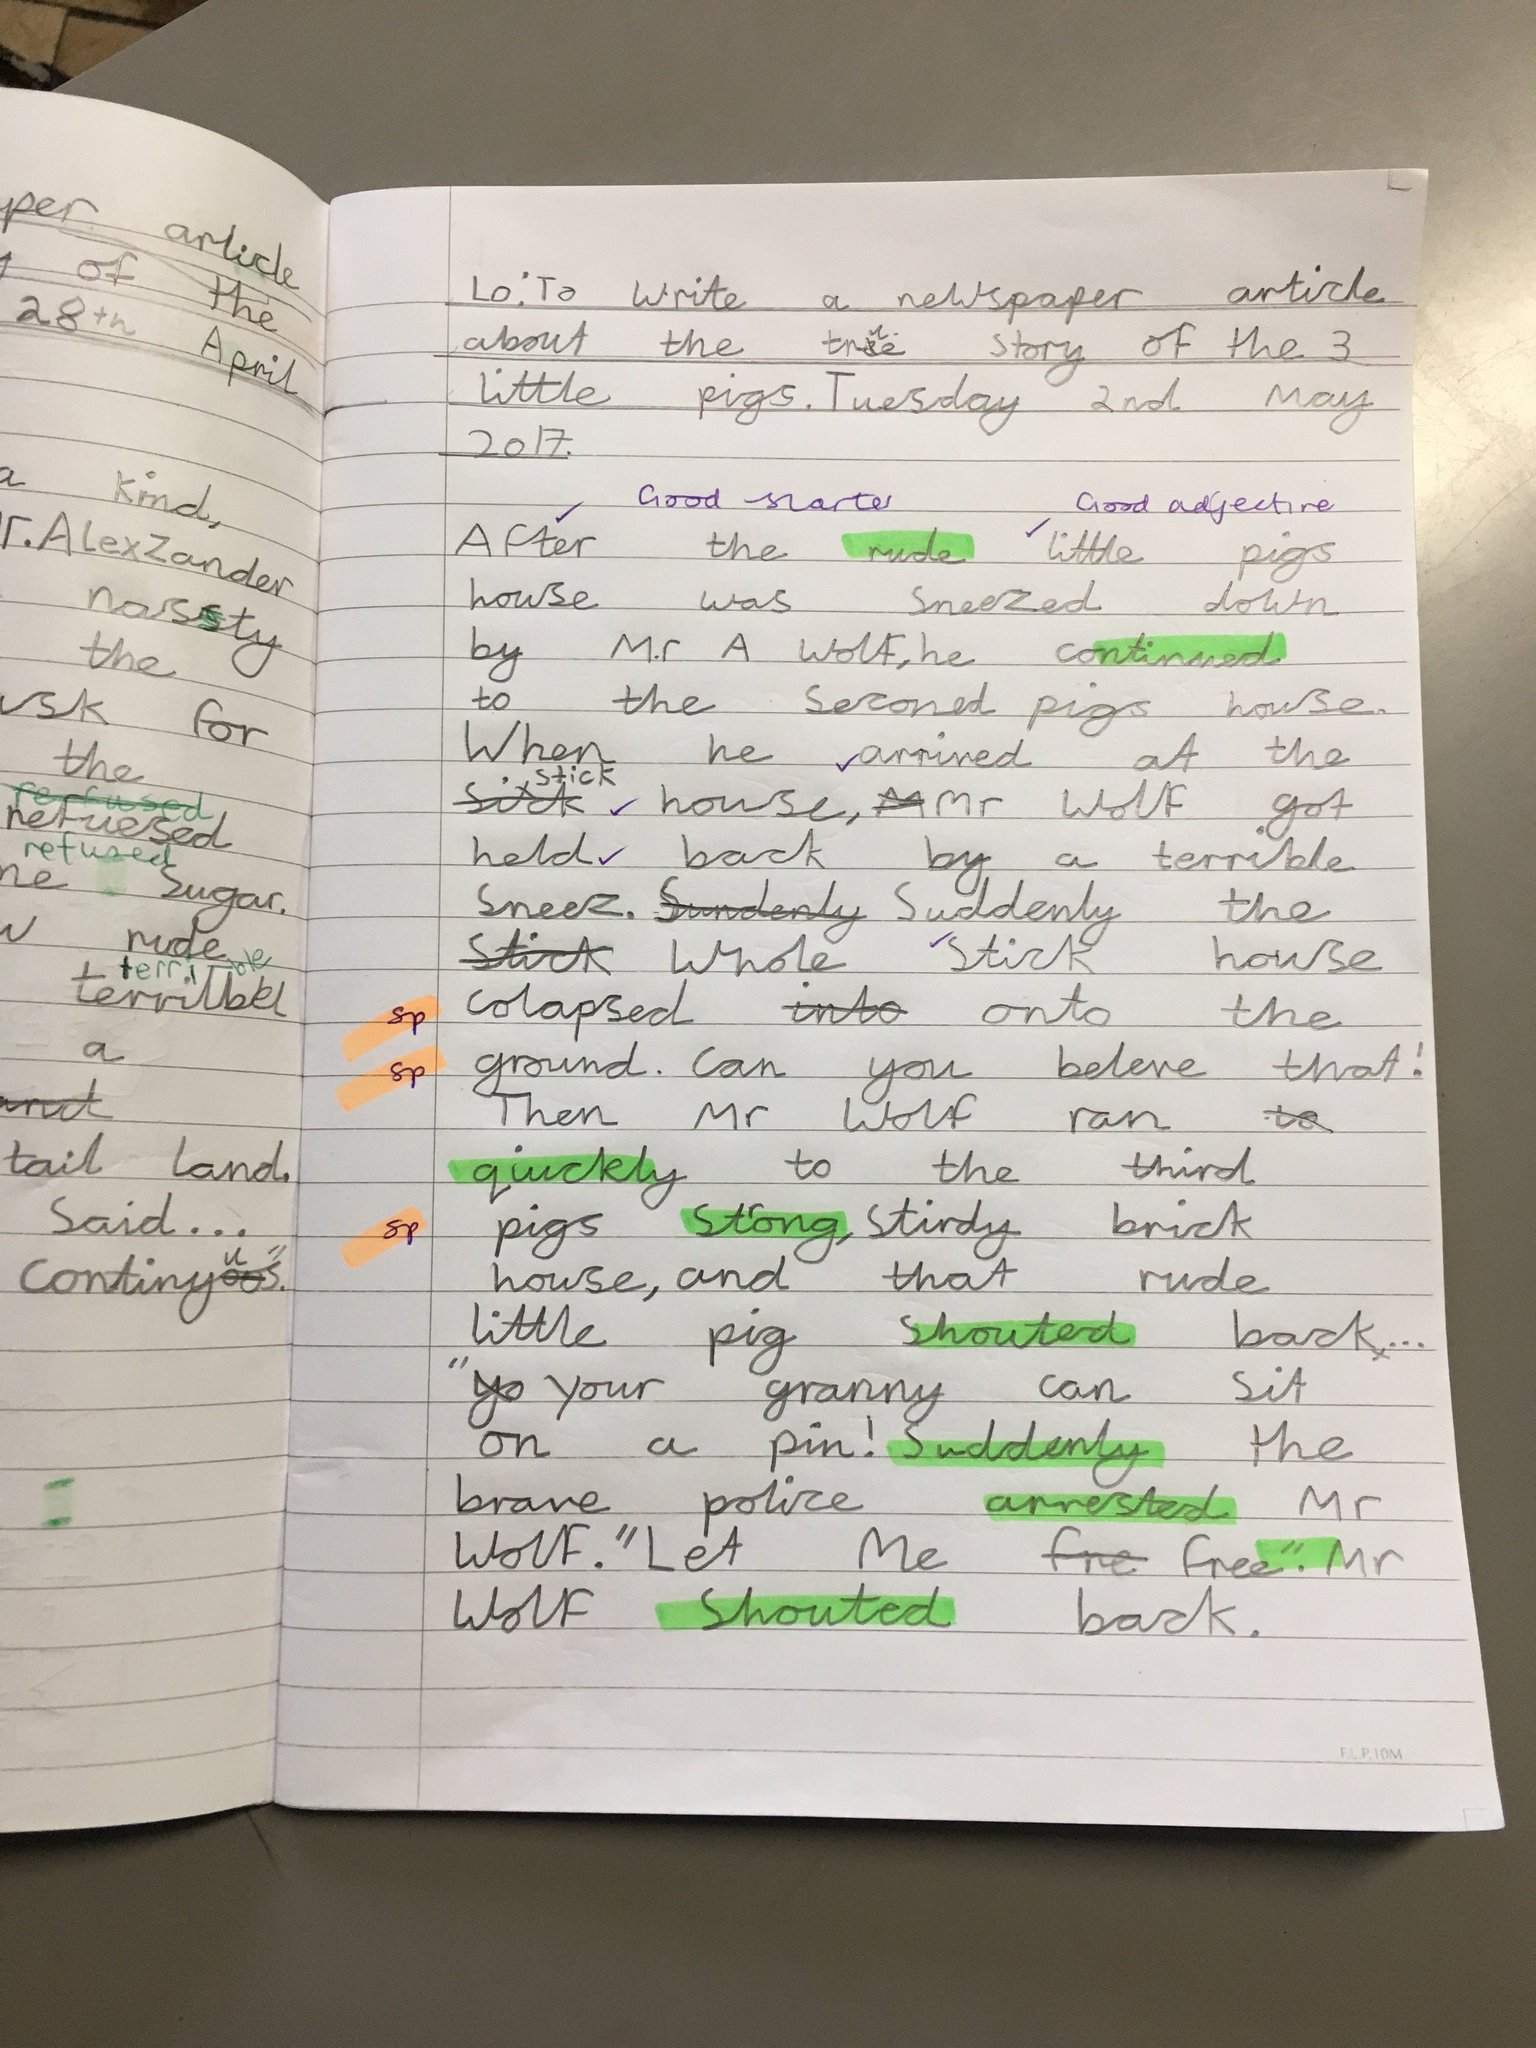 per article
of the
28th April
a kind,
r. Alexzander
nassty
the
usk for
the
refused
refuesed
refused
me sugar.
w rude
terrible
terrilbel
a
and
tail land.
Said...
Continyu s".
Lo: To write a newspaper article
about the true story of the 3
little pigs. Tuesday 2nd May
2017.
Good starter Good adjective
After the rude little pigs
house was sneezed down
by Mr A Wolf, he continued
to the seconed pigs house.
When he arrived at the
stick
sick house, M Mr Wolf got
held back by a terrible
sneez. Sundenly Suddenly the
Stick Whole Stick house
sp colapsed into onto the
sp ground. Can you beleve that!
Then Mr Wolf ran to
qiuckly to the third
sp pigs strong, stirdy brick
house, and that rude
little pig shouted back...
"yo your granny can sit
on a pin! Suddenly the
brave police arrested Mr
Wolf. "Let Me fre free". Mr
Wolf shouted back.
F.L.P.10M